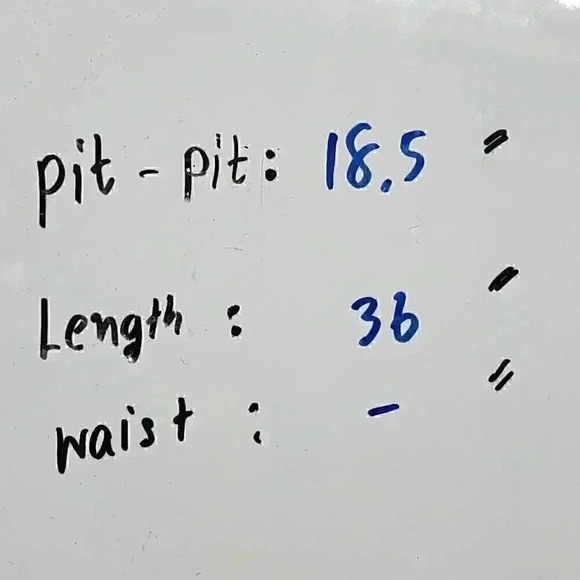 pit - pit: 18.5 "
Length : 36 "
waist : - "